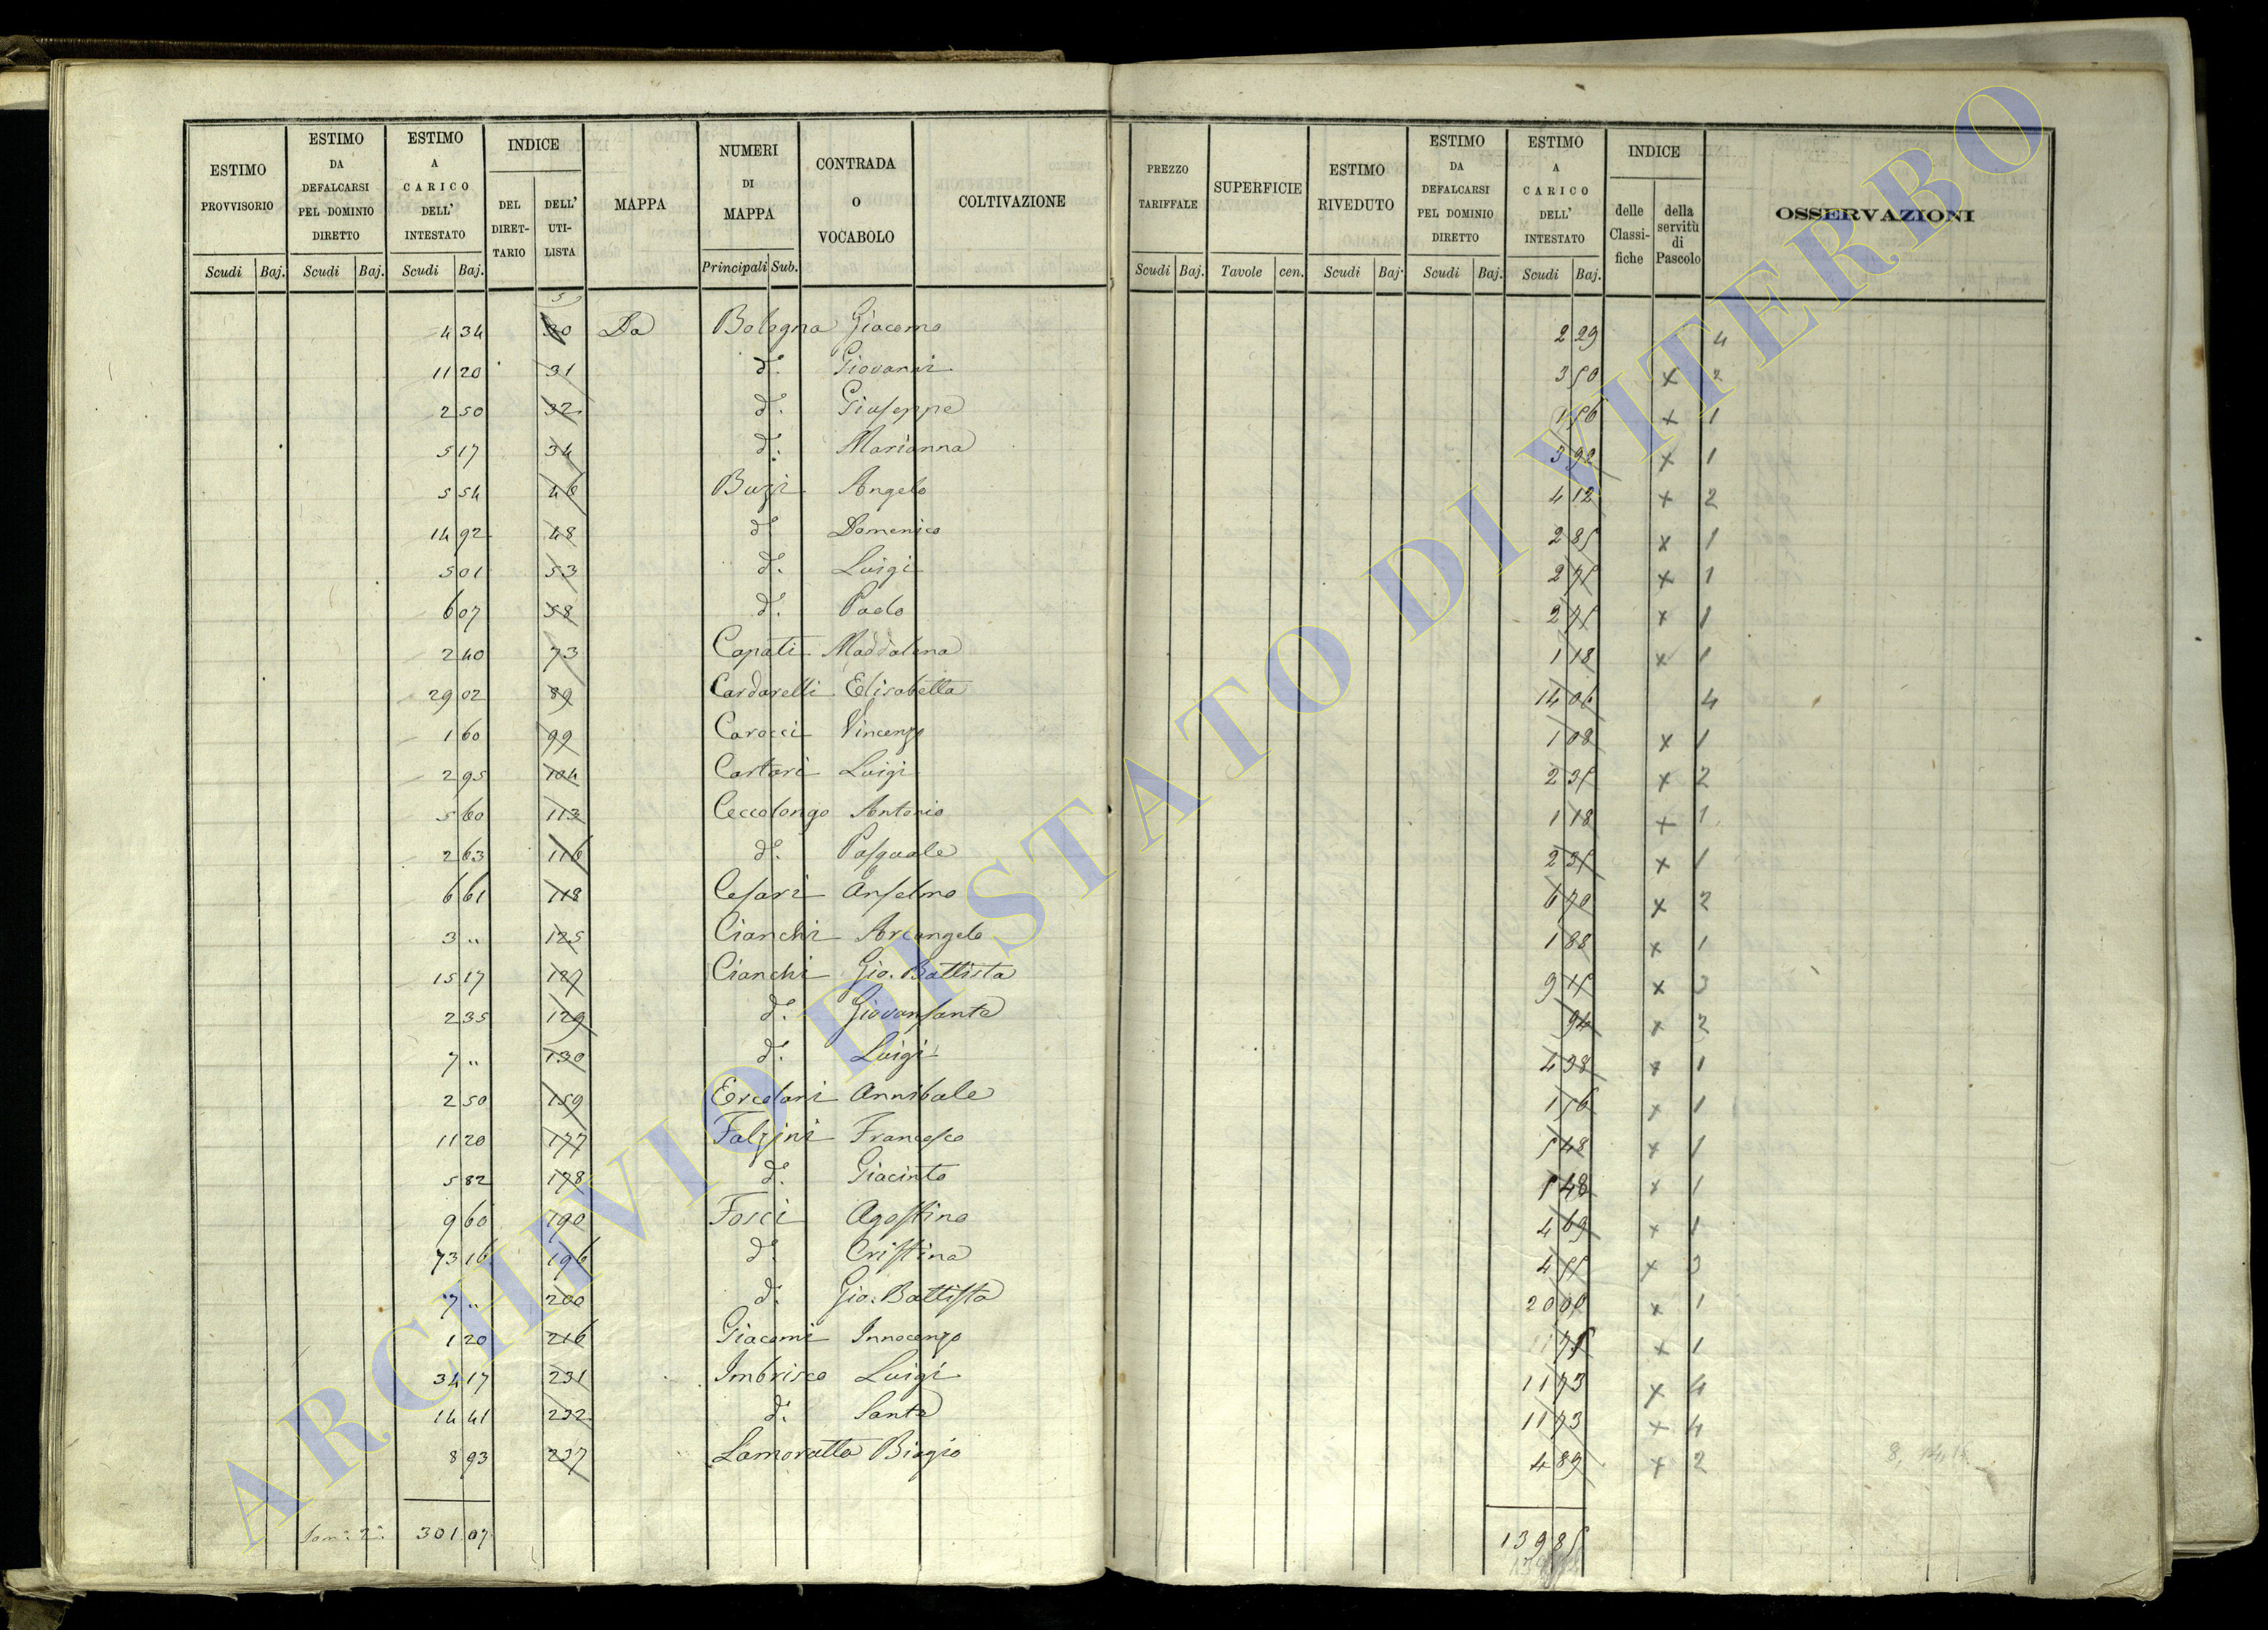 ESTIMO PROVVISORIO
ESTIMO DA DEFALCARSI PEL DOMINIO DIRETTO
ESTIMO A CARICO DELL' INTESTATO
INDICE
DEL DIRET- TARIO
DELL' UTI- LISTA
MAPPA
NUMERI DI MAPPA
CONTRADA O VOCABOLO
COLTIVAZIONE
PREZZO TARIFFALE
SUPERFICIE
ESTIMO RIVEDUTO
ESTIMO DA DEFALCARSI PEL DOMINIO DIRETTO
ESTIMO A CARICO DELL' INTESTATO
INDICE
delle Classi- fiche
della servitù di Pascolo
OSSERVAZIONI
Scudi Baj. Scudi Baj. Scudi Baj. Principali Sub. Scudi Baj. Tavole cen. Scudi Baj. Scudi Baj. Scudi Baj.
5
4 34 30 Da Bologna Giacomo 2 29 4
11 20 31 d.º Giovanni 3 50 x 2
2 50 32 d.º Giuseppe 1 56 x 1
5 17 34 d.º Marianna 3 92 x 1
5 54 46 Buzi Angelo 4 12 x 2
14 92 48 d.º Domenico 2 85 x 1
5 01 53 d.º Luigi 2 75 x 1
6 07 58 d.º Paolo 2 75 x 1
2 40 73 Capati Maddalena 1 18 x 1
29 02 89 Cardarelli Elisabetta 14 06 4
1 60 99 Carocci Vincenzo 1 08 x 1
2 95 104 Cartari Luigi 2 35 x 2
5 60 113 Ceccolongo Antonio 1 18 x 1
2 63 116 d.º Pasquale 2 35 x 1
6 61 118 Cesari Anselmo 6 70 x 2
3 " 125 Cianchi Arcangelo 1 88 x 1
15 17 127 Cianchi Gio. Battista 9 x 3
2 35 129 d.º Giovansante 94 x 2
7 " 130 d.º Luigi 4 38 x 1
2 50 159 Ercolani Annibale 1 56 x 1
11 20 177 Falzini Francesco 5 48 x 1
5 82 178 d.º Giacinto 5 48 x 1
9 60 190 Fosci Agostino 4 69 x 1
73 16 196 d.º Cristina 4 x 3
7 " 200 d.º Gio. Battista 20 00 x 1
1 20 216 Giacomi Innocenzo 75 x 1
34 17 231 Imbrisco Luigi 11 73 x 4
14 41 232 d.º Sante 11 73 x 4
8 93 237 Lamoratta Biagio 4 89 x 2
301 07 139 85
ARCHIVIO DI STATO DI VITERBO